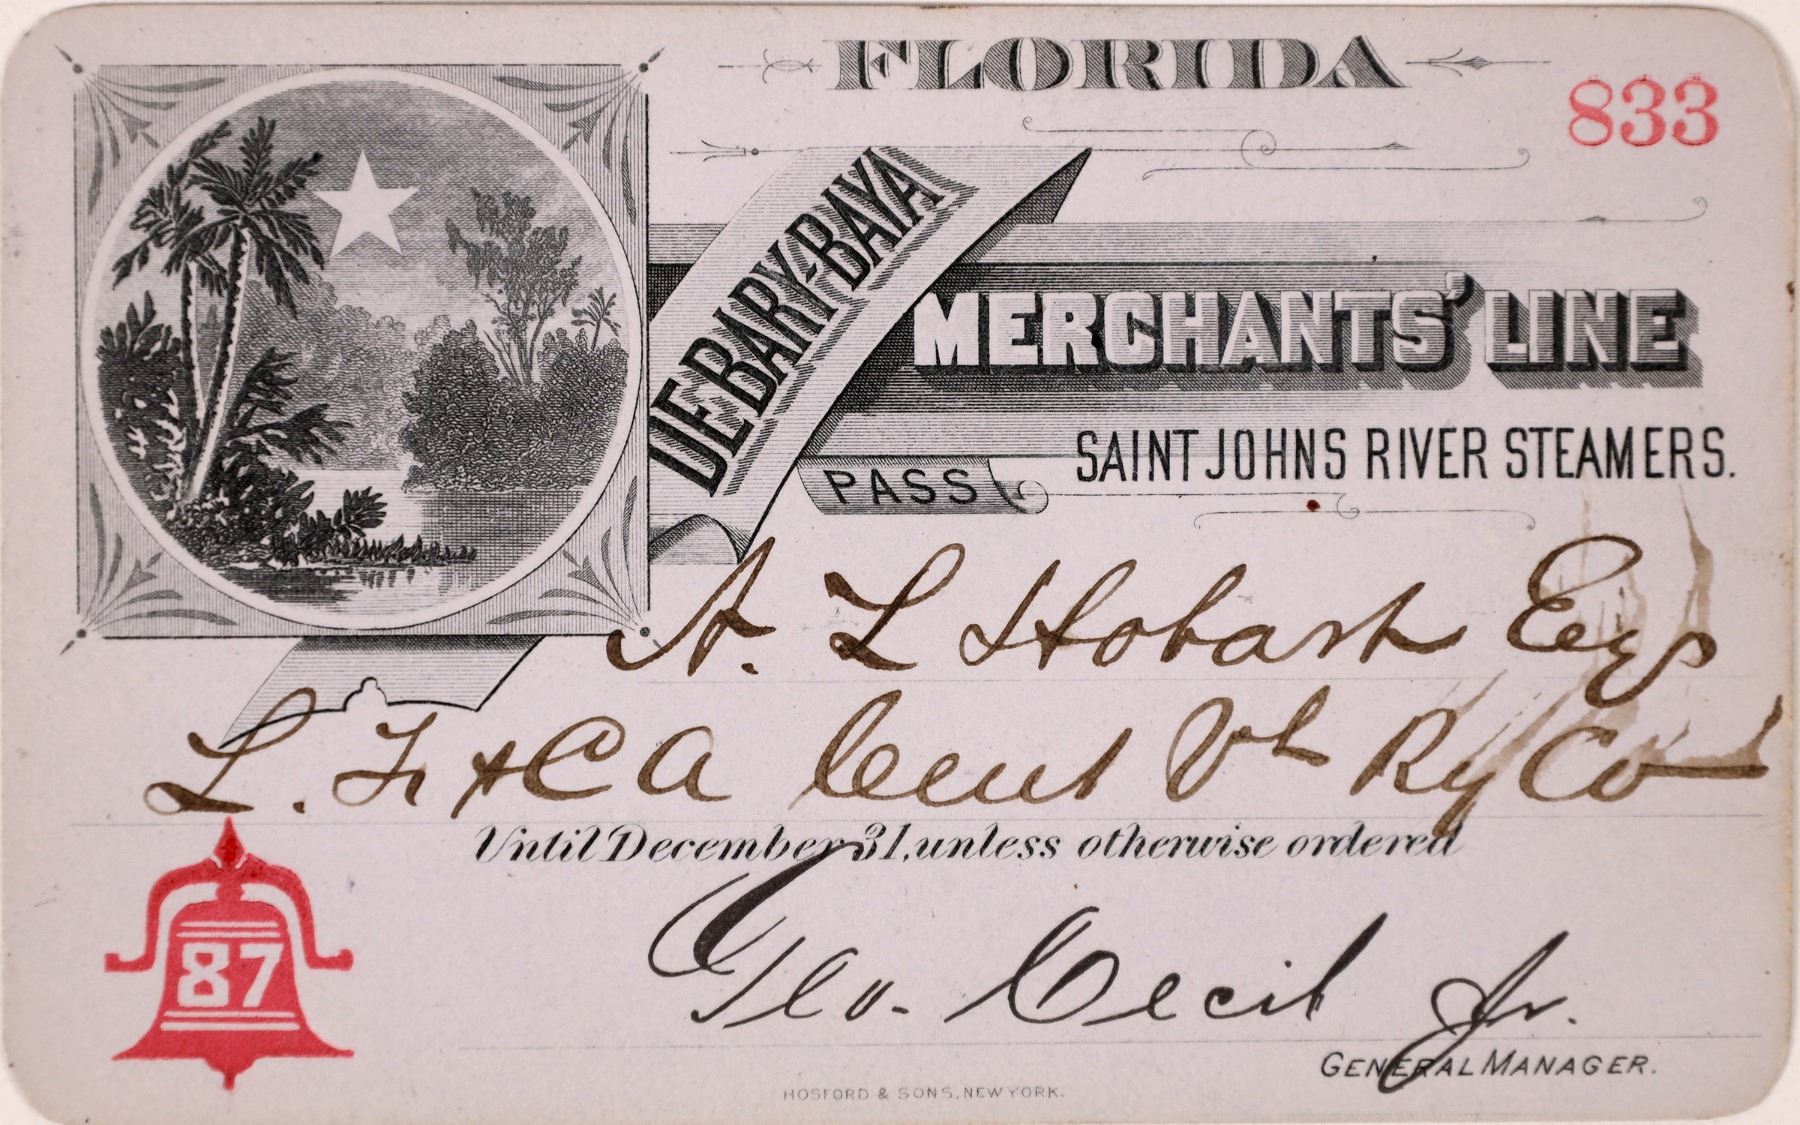 FLORIDA
833
DEBARY-BAYA
MERCHANTS' LINE
SAINT JOHNS RIVER STEAMERS.
PASS
A. L Hobart Esq
L. F & C A Cent Vt Ry Co
Until December 31, unless otherwise ordered
87
Geo. Cecil Jr.
GENERAL MANAGER.
HOSFORD & SONS, NEW YORK.